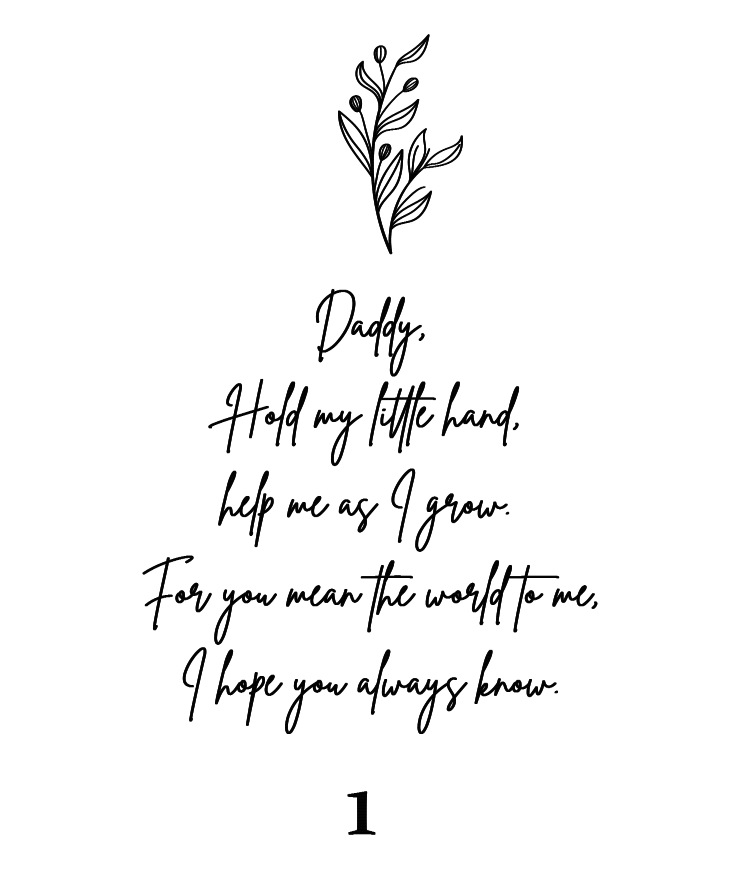 Daddy,
Hold my little hand,
help me as I grow.
For you mean the world to me,
I hope you always know.
1